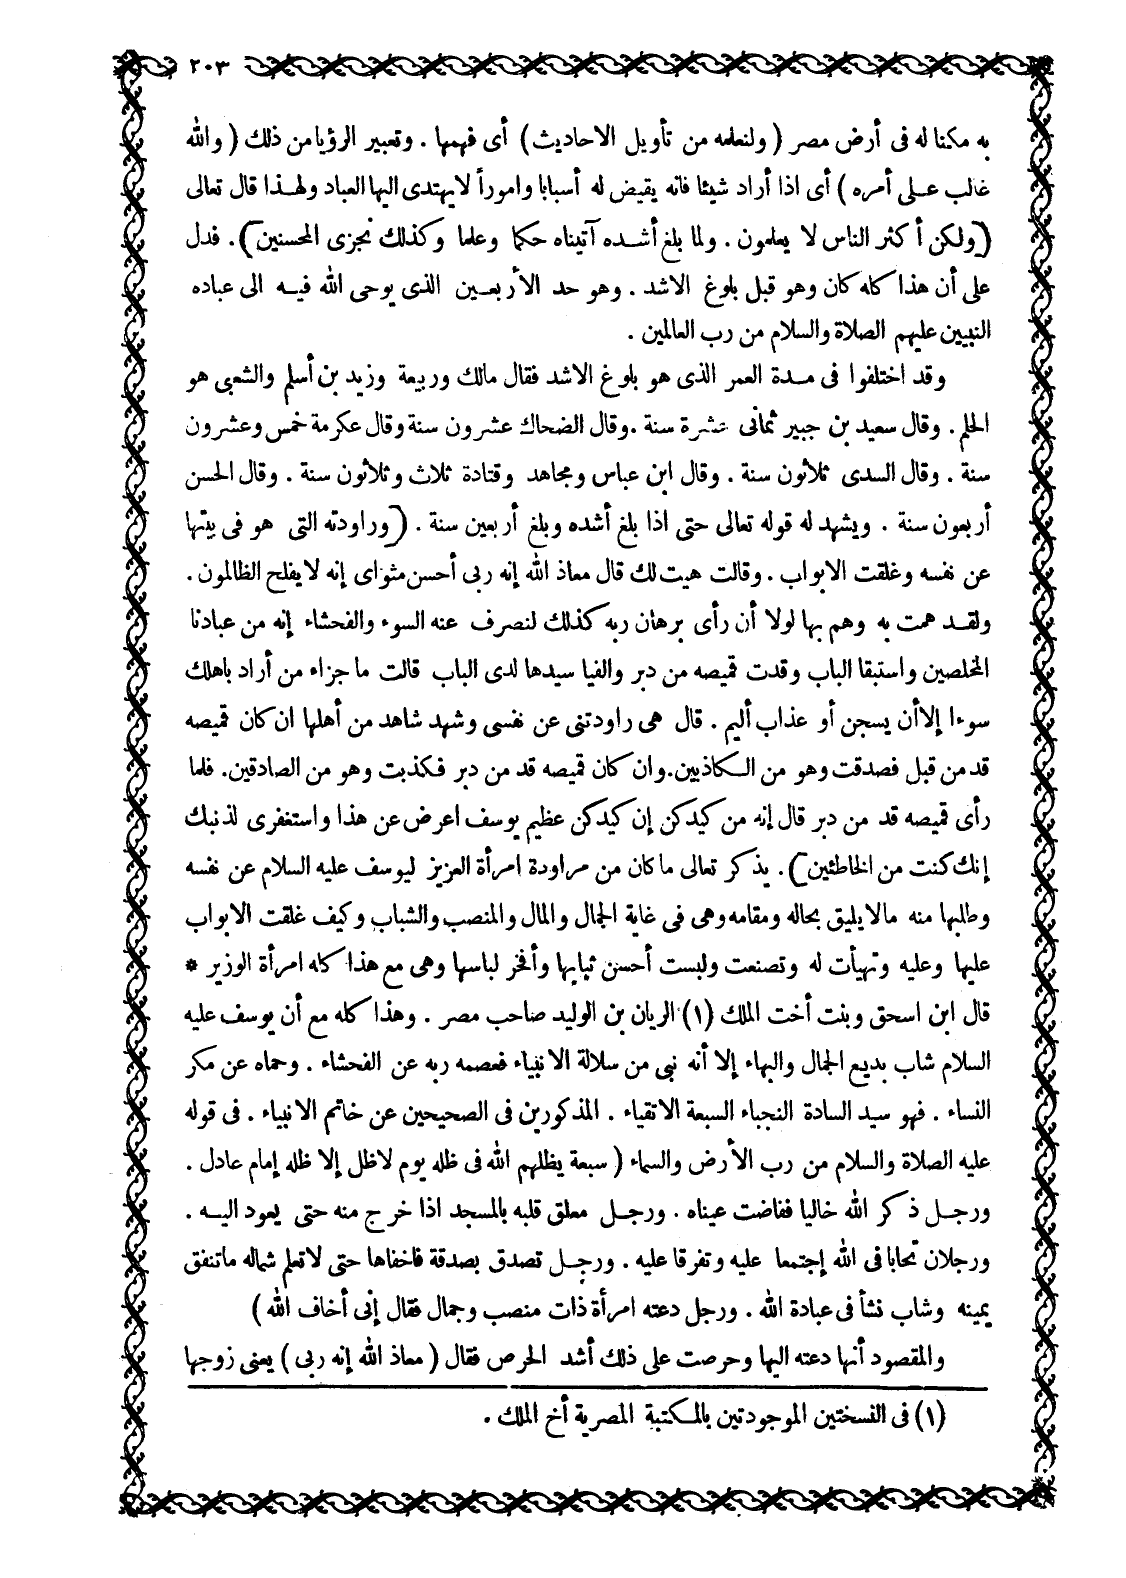 ٢٠٣
به مكنا له فى أرض مصر ( ولنعلمه من تأويل الاحاديث ) أى فهمها . وتعبير الرؤيا من ذلك ( والله
غالب على أمره ) أى اذا أراد شيئا فانه يقيض له أسبابا واموراً لا يهتدى اليها العباد ولهذا قال تعالى
( ولكن أكثر الناس لا يعلمون . ولما بلغ أشده آتيناه حكما وعلما وكذلك نجزى المحسنين ) . فدل
على أن هذا كله كان وهو قبل بلوغ الاشد . وهو حد الأربعين الذى يوحى الله فيه الى عباده
النبيين عليهم الصلاة والسلام من رب العالمين .
وقد اختلفوا فى مدة العمر الذى هو بلوغ الاشد فقال مالك وربيعة وزيد بن أسلم والشعبى هو
الحلم . وقال سعيد بن جبير ثمانى عشرة سنة . وقال الضحاك عشرون سنة وقال عكرمة خمس وعشرون
سنة . وقال السدى ثلاثون سنة . وقال ابن عباس ومجاهد وقتادة ثلاث وثلاثون سنة . وقال الحسن
أربعون سنة . ويشهد له قوله تعالى حتى اذا بلغ أشده وبلغ أربعين سنة . ( وراودته التى هو فى بيتها
عن نفسه وغلقت الابواب . وقالت هيت لك قال معاذ الله إنه ربى أحسن مثواى إنه لا يفلح الظالمون .
ولقد همت به وهم بها لولا أن رأى برهان ربه كذلك لنصرف عنه السوء والفحشاء إنه من عبادنا
المخلصين واستبقا الباب وقدت قميصه من دبر والفيا سيدها لدى الباب قالت ما جزاء من أراد باهلك
سوءا إلا أن يسجن أو عذاب أليم . قال هى راودتنى عن نفسى وشهد شاهد من أهلها ان كان قميصه
قد من قبل فصدقت وهو من الكاذبين . وان كان قميصه قد من دبر فكذبت وهو من الصادقين . فلما
رأى قميصه قد من دبر قال إنه من كيدكن إن كيدكن عظيم يوسف اعرض عن هذا واستغفرى لذنبك
إنك كنت من الخاطئين ) . يذكر تعالى ما كان من مراودة امرأة العزيز ليوسف عليه السلام عن نفسه
وطلبها منه مالا يليق بحاله ومقامه وهى فى غاية الجمال والمال والمنصب والشباب وكيف غلقت الابواب
عليها وعليه وتهيأت له وتصنعت ولبست أحسن ثيابها وأفخر لباسها وهى مع هذا كله امرأة الوزير *
قال ابن اسحق وبنت أخت الملك (١) الريان بن الوليد صاحب مصر . وهذا كله مع أن يوسف عليه
السلام شاب بديع الجمال والبهاء إلا أنه نبى من سلالة الانبياء فعصمه ربه عن الفحشاء . وحماه عن مكر
النساء . فهو سيد السادة النجباء السبعة الاتقياء . المذكورين فى الصحيحين عن خاتم الانبياء . فى قوله
عليه الصلاة والسلام من رب الأرض والسماء ( سبعة يظلهم الله فى ظله يوم لا ظل إلا ظله إمام عادل .
ورجل ذكر الله خاليا ففاضت عيناه . ورجل معلق قلبه بالمسجد اذا خرج منه حتى يعود اليه .
ورجلان تحابا فى الله إجتمعا عليه وتفرقا عليه . ورجل تصدق بصدقة فاخفاها حتى لا تعلم شماله ما تنفق
يمينه وشاب نشأ فى عبادة الله . ورجل دعته امرأة ذات منصب وجمال فقال إنى أخاف الله )
والمقصود أنها دعته اليها وحرصت على ذلك أشد الحرص فقال ( معاذ الله إنه ربى ) يعنى زوجها
(١) فى النسختين الموجودتين بالمكتبة المصرية أخ الملك .